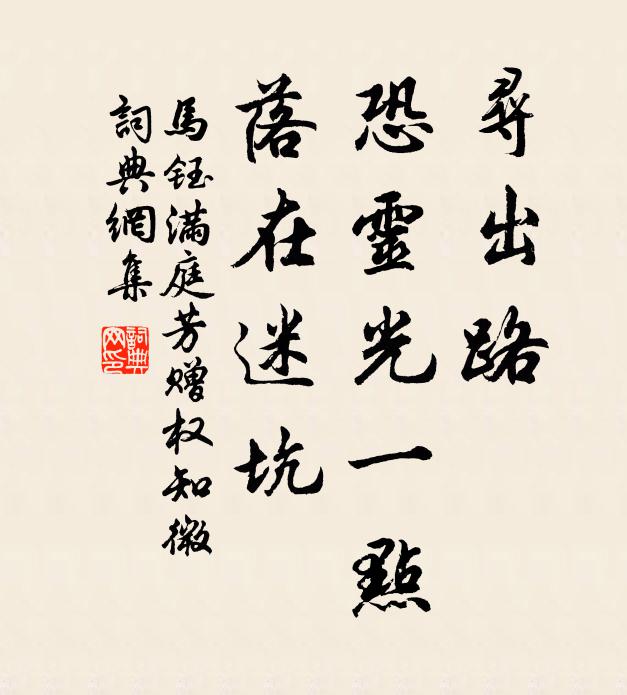 尋出路
恐靈光一點
落在迷坑
馬鈺满庭芳赠权知微
詞典網集
詞典
网印